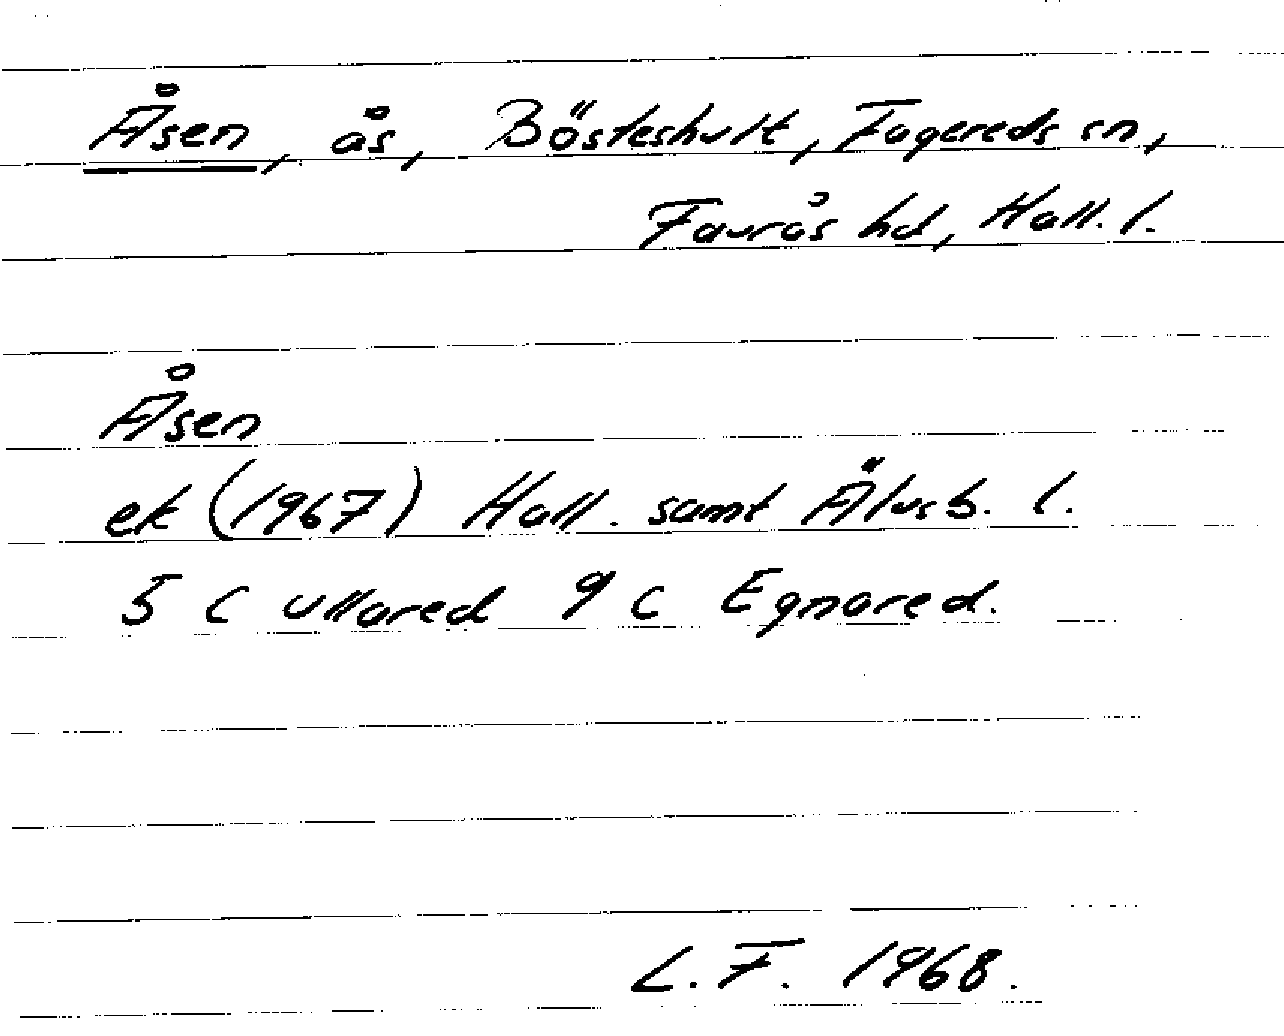 Åsen, ås, Bösteshult, Fagereds sn,
Faurås hd, Hall. l.
Åsen
ek (1967) Hall. samt Älvsb. l.
5 C Ullared 9 c Egnared.
L. F. 1968.